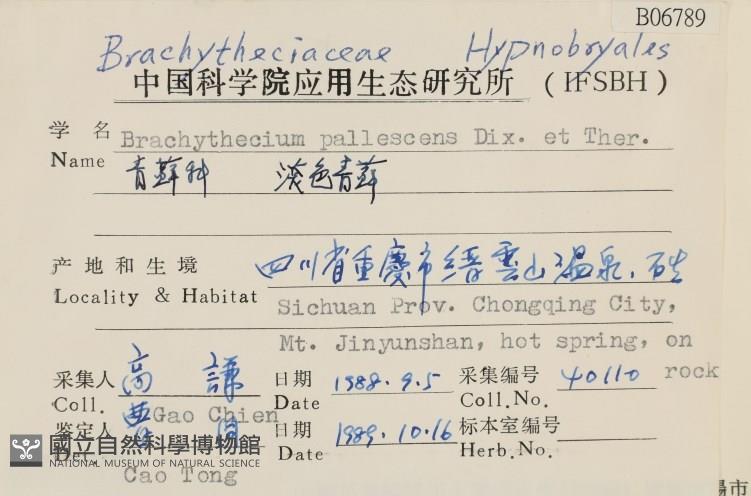 B06789
Brachytheciaceae Hypnobryales
中国科学院应用生态研究所 (IFSBH)
学名 Brachythecium pallescens Dix. et Ther.
Name 青蘚科 淡色青蘚
产地和生境 四川省重慶市缙雲山温泉,石生
Locality & Habitat Sichuan Prov. Chongqing City,
Mt. Jinyunshan, hot spring, on
rock
采集人 高謙 日期 1988.9.5 采集编号 40110
Coll. Gao Chien Date Coll.No.
鉴定人 曹同 日期 1989.10.16 标本室编号
Det. Cao Tong Date Herb.No.
國立自然科學博物館
NATIONAL MUSEUM OF NATURAL SCIENCE